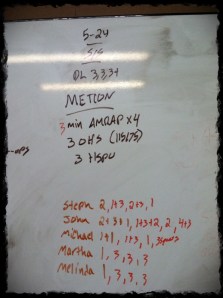 5-24
S/S
DL 3,3,3+
METCON
3 min AMRAP x4
3 OHS (115/75)
3 HSPU
Steph 2, 1+3, 2+3, 1
John 2+3+1, 1+3+2, 2, 4+3
Michael 1+1, 1+3, 1,
Martha 1, 3, 3, 3
Melinda 1, 3, 3, 3